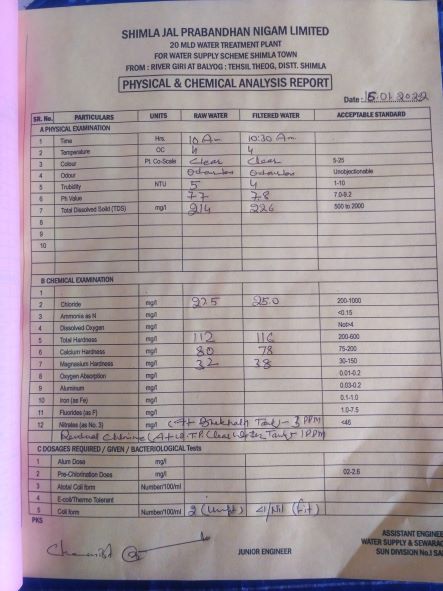 SHIMLA JAL PRABANDHAN NIGAM LIMITED
20 MLD WATER TREATMENT PLANT
FOR WATER SUPPLY SCHEME SHIMLA TOWN
FROM : RIVER GIRI AT BALYOG : TEHSIL THEOG, DISTT. SHIMLA
PHYSICAL & CHEMICAL ANALYSIS REPORT
Date: 15.01.2022
SR. No. PARTICULARS UNITS RAW WATER FILTERED WATER ACCEPTABLE STANDARD
A PHYSICAL EXAMINATION
1 Time Hrs. 10 Am 10:30 Am
2 Temperature OC 4 4
3 Colour Pt. Co-Scale Clear Clear 5-25
4 Odour Odourless Odourless Unobjectionable
5 Trubidity NTU 5 4 1-10
6 PH Value 7.7 7.8 7.0-9.2
7 Total Dissolved Soild (TDS) mg/l 214 226 500 to 2000
8
9
10
B CHEMICAL EXAMINATION
1
2 Chloride mg/l 22.5 25.0 200-1000
3 Ammonia as N mg/l <0.15
4 Dissolved Oxygen mg/l Not>4
5 Total Hardness mg/l 112 116 200-600
6 Calcium Hardness mg/l 80 78 75-200
7 Magnesium Hardness mg/l 32 38 30-150
8 Oxygen Absorption mg/l 0.01-0.2
9 Aluminum mg/l 0.03-0.2
10 Iron (as Fe) mg/l 0.1-1.0
11 Fluorides (as F) mg/l 1.0-7.5
12 Nitrates (as No. 3) mg/l Tank - 3 PPM <45
Residual Chlorine (At W.T.P. Clear Water Tank - 1 PPM
C DOSAGES REQUIRED / GIVEN / BACTERIOLOGICAL Tests
1 Alum Dose mg/l
2 Pre-Chlorination Does mg/l 02-2.6
3 Atotal Coli form Number/100/ml
4 E-coli/Thermo Tolerant
5 Coli form Number/100/ml 2 (Unfit) <1/Nil (Fit)
PKS
Chemist
JUNIOR ENGINEER
ASSISTANT ENGINEE
WATER SUPPLY & SEWARAG
SUN DIVISION No.I SA